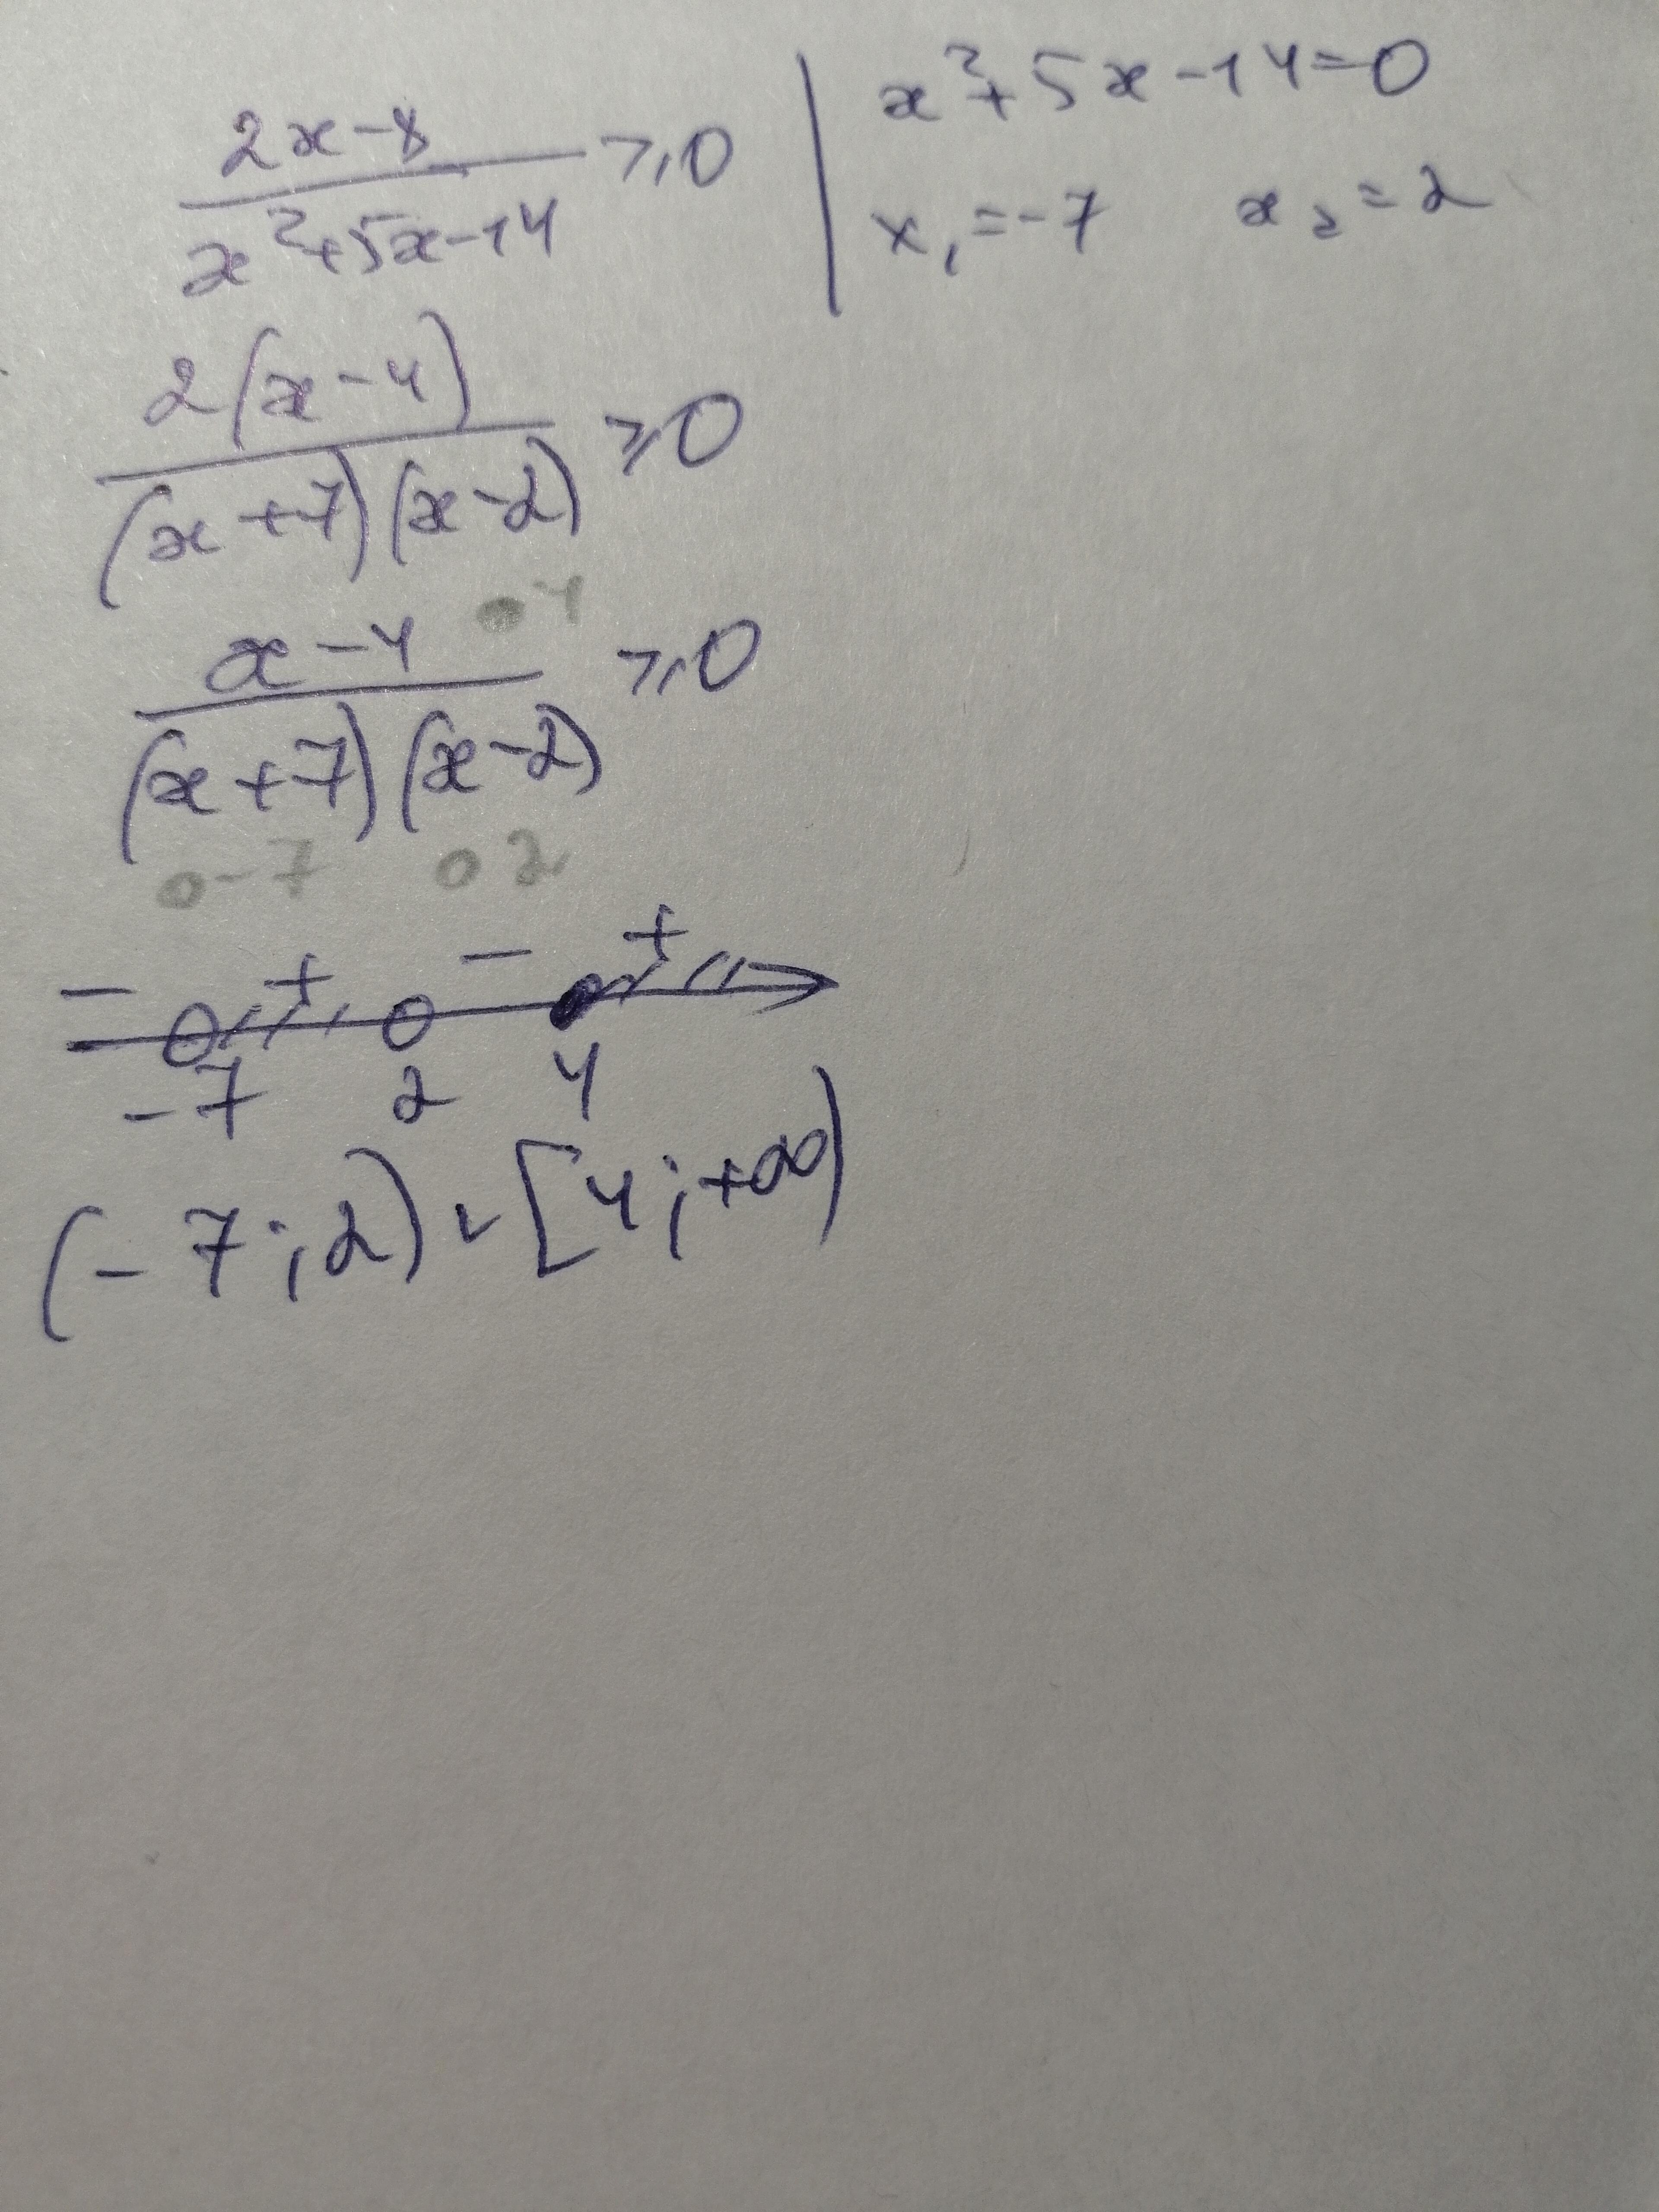 (2x-8)/(x²+5x-14) ⩾ 0 | x²+5x-14=0
x₁=-7 x₂=2
2(x-4)/((x+7)(x-2)) ⩾ 0
4
(x-4)/((x+7)(x-2)) ⩾ 0
-7 2
- + - +
-7 2 4
(-7;2)∪[4;+∞)